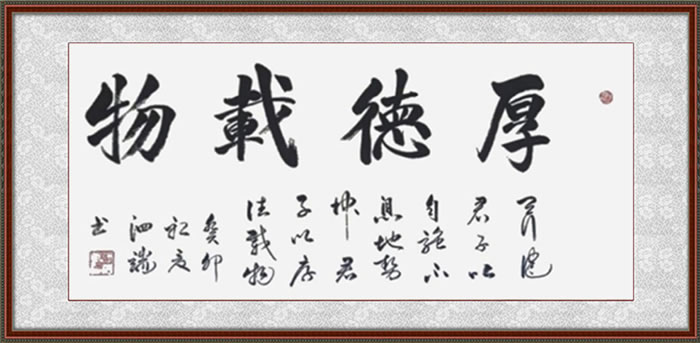 厚德載物
天行健
君子以
自強不
息地勢
坤君
子以厚
德載物
癸卯
初夏
书